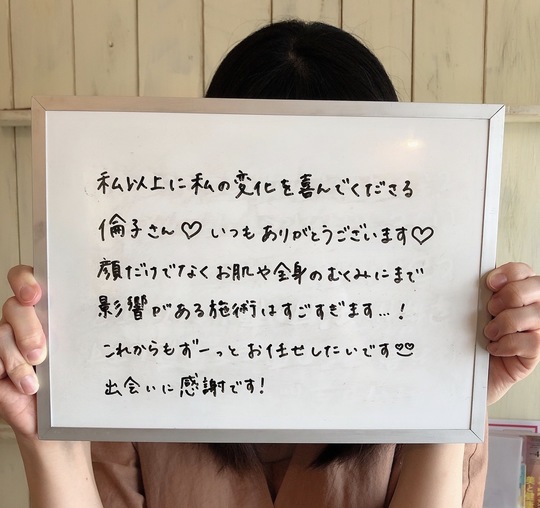 私以上に私の変化を喜んでくださる
倫子さん♡いつもありがとうございます♡
顔だけでなくお肌や全身のむくみにまで
影響がある施術はすごすぎます…！
これからもずーっとお任せしたいです
出会いに感謝です！